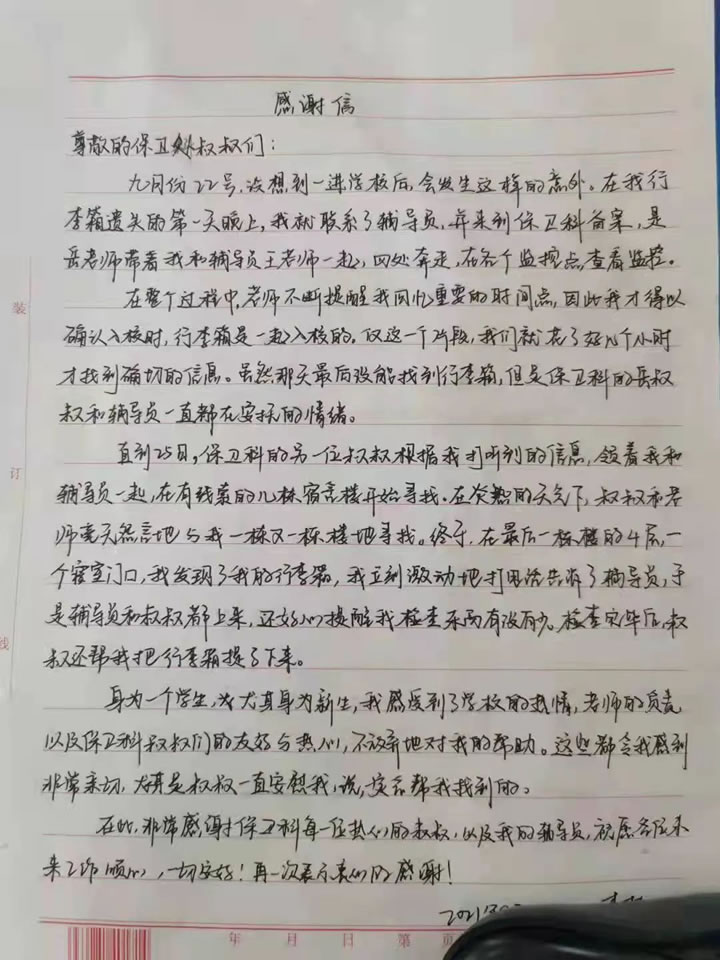 感谢信
尊敬的保卫处叔叔们：
九月份22号,没想到一进学校后,会发生这样的意外。在我行
李箱遗失的第一天晚上,我就联系了辅导员,并来到保卫科备案,是
岳老师带着我和辅导员王老师一起,四处奔走,在各个监控点查看监控。
在整个过程中,老师不断提醒我回忆重要的时间点,因此我才得以
确认入校时,行李箱是一起入校的。仅这一个片段,我们就花了好几个小时
才找到确切的信息。虽然那天最后没能找到行李箱,但是保卫科的岳叔
叔和辅导员一直都在安抚的情绪。
直到25日,保卫科的另一位叔叔根据我打听到的信息,领着我和
辅导员一起,在有线索的几栋宿舍楼开始寻找。在炎热的天气下,叔叔和老
师毫无怨言地与我一栋又一栋楼地寻找。终于,在最后一栋楼的4层,一
个寝室门口,我发现了我的行李箱,我立刻激动地打电话告诉了辅导员,于
是辅导员和叔叔都上来,还好心提醒我检查东西有没有少,检查完毕后,叔
叔还帮我把行李箱提了下来。
身为一个学生,尤其身为新生,我感受到了学校的热情,老师的负责
以及保卫科叔叔们的友好与热心,不放弃地对我的帮助。这些都令我感到
非常亲切,尤其是叔叔一直安慰我,说,定会帮我找到的。
在此,非常感谢保卫科每一位热心的叔叔,以及我的辅导员,祝愿各位未
来工作顺心,一切安好！再一次表示衷心的感谢！
2021年
装
订
线
年 月 日 第 页